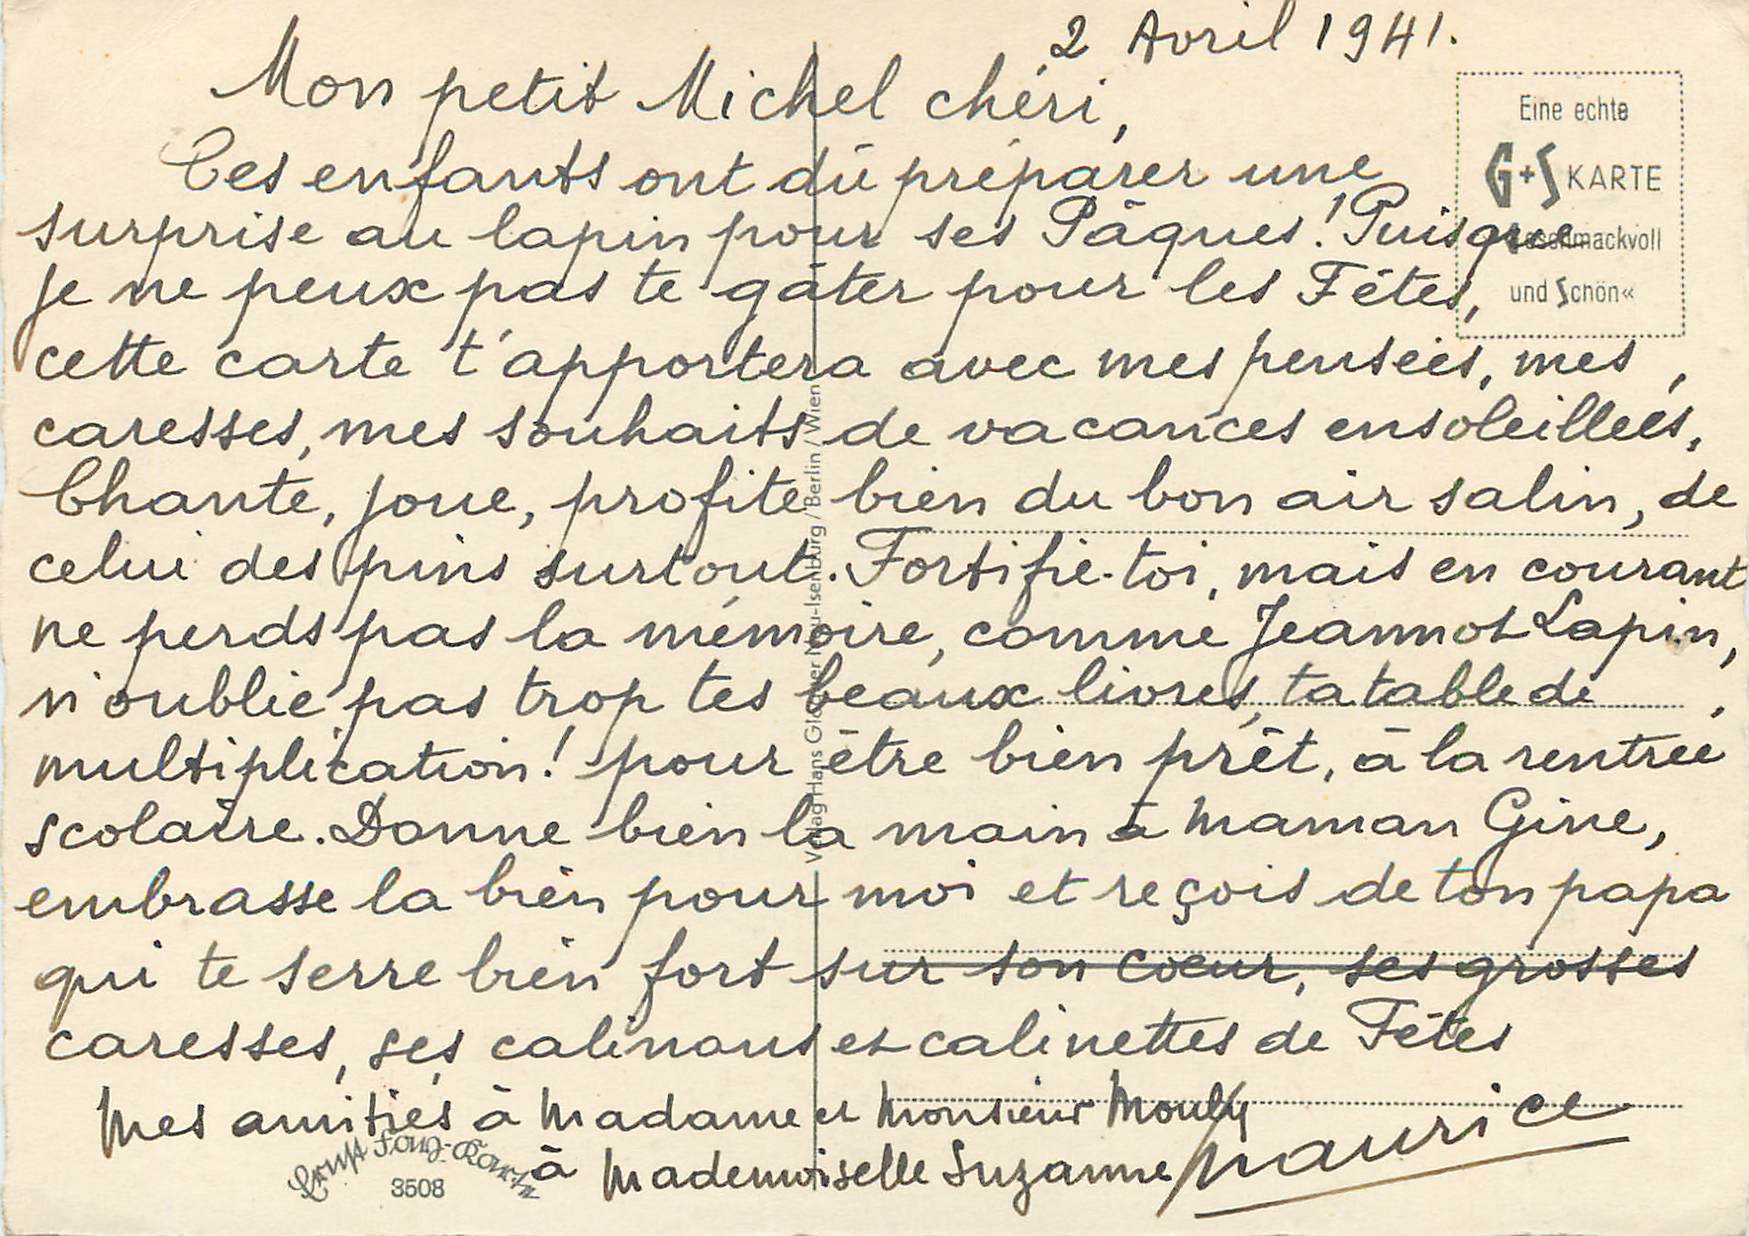 2 Avril 1941.
Mon petit Michel chéri,
Ces enfants ont dû préparer une
surprise au lapin pour ses Pâques! Puisque
je ne peux pas te gâter pour les Fêtes,
cette carte t'apportera avec mes pensées, mes
caresses, mes souhaits de vacances ensoleillées,
Chante, joue, profite bien du bon air salin, de
celui des pins surtout. Fortifie-toi, mais en courant
ne perds pas la mémoire, comme Jeannot Lapin,
n'oublie pas trop tes beaux livres, ta table de
multiplication! pour être bien prêt, à la rentrée
scolaire. Donne bien la main à maman Gine,
embrasse la bien pour moi et reçois de ton papa
qui te serre bien fort sur son cœur, ses grosses
caresses, ses calinous et calinettes de Fêtes
Mes amitiés à Madame et Monsieur Mouly
à Mademoiselle Suzanne Maurice
Eine echte
G+S KARTE
schmackvoll
und Schön«
Verlag Hans Isenburg / Berlin / Wien
3508